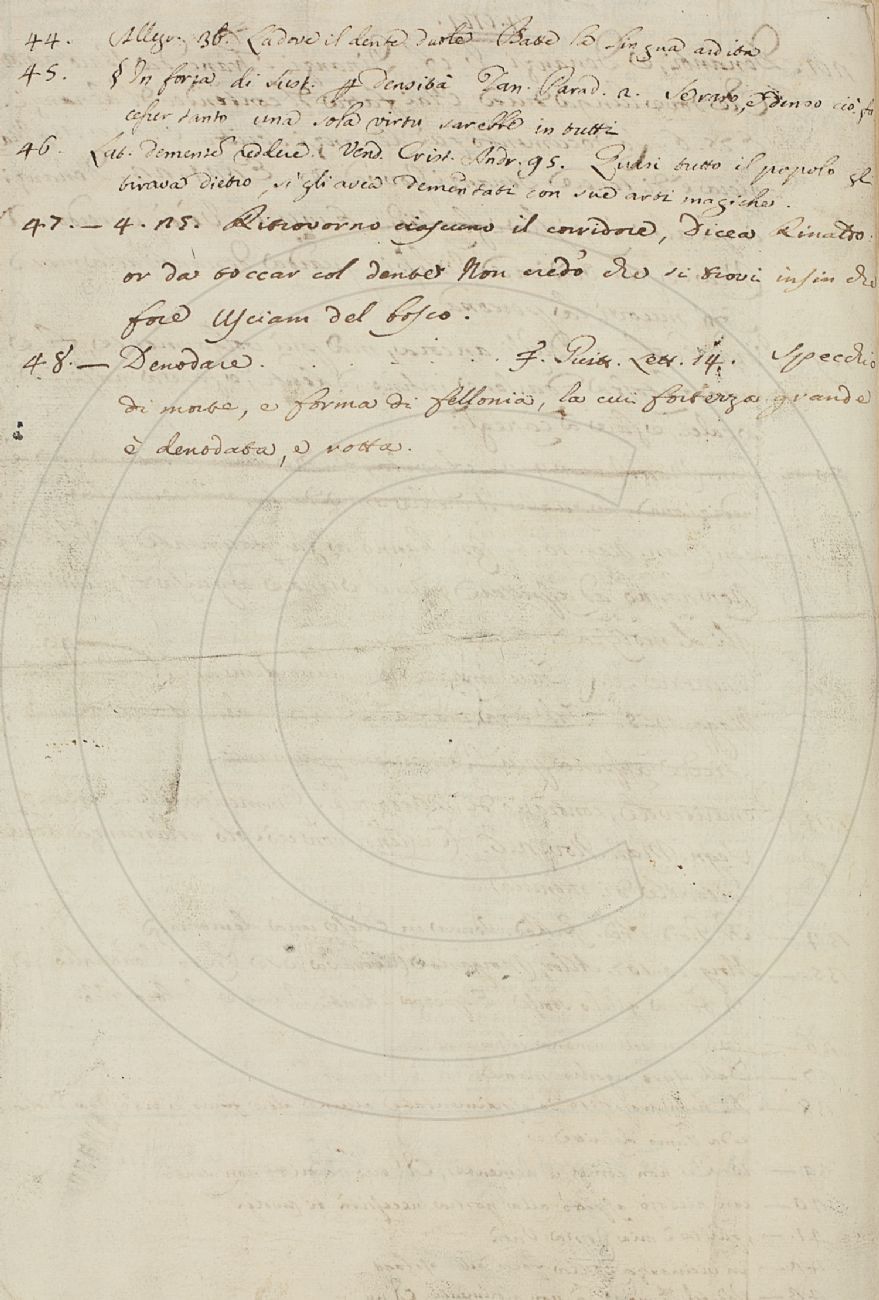 44. Allegr. 36. Ladove il dente duole Batte la lingua ardita
45. § In forza di Sust. p Densità Dan. Parad. 2. Se raro, e denso ciò fa
cesser tanto una sola virtù sarebbe in tutti
46. Lat. dementē reddere. Vend. Crist. Andr. 95. Quasi tutto il popolo gli
tirava dietro, si gli avea dementati con sue arti magiche.
47. — 4. 125. Ritrovorno ciascuno il corridore, Dicea Rinaldo
or da toccar col dente Non credo che si trovi insin che
fore Usciam del bosco.
48. — Denodare . . . . . . . . F. Guitt. Lett. 14. Specchio
di morte, e forma di fellonia, la cui fortezza grande
è denodata, e rotta.